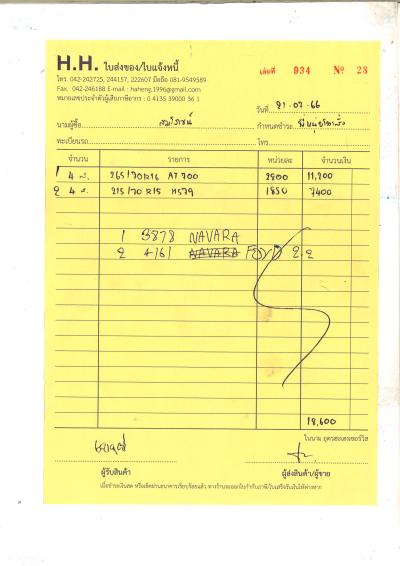 H.H. ใบส่งของ/ใบแจ้งหนี้
เล่มที่ 934 № 28
โทร. 042-242725, 244157, 222607 มือถือ 081-9549589
Fax. 042-246188 E-mail : haheng.1996@gmail.com
หมายเลขประจำตัวผู้เสียภาษีอากร : 0 4135 39000 36 1
วันที่ 21-07-66
นามผู้ซื้อ กำหนดชำระ
ทะเบียนรถ โทร
จำนวน รายการ หน่วยละ จำนวนเงิน
1 4 ส. 265/70R16 AT700 2800 11,200
2 4 ส. 215/70R15 H579 1850 7400
1 3878 NAVARA
2 4161 NAVARA FORD 2.2
18,600
ในนาม อุดรฮะเฮงเซอร์วิส
ผู้รับสินค้า ผู้ส่งสินค้า/ผู้ขาย
เมื่อชำระเงินสด หรือเช็คผ่านธนาคารเรียบร้อยแล้ว ทางร้านจะออกใบกำกับภาษี/ใบเสร็จรับเงินให้ต่างหาก